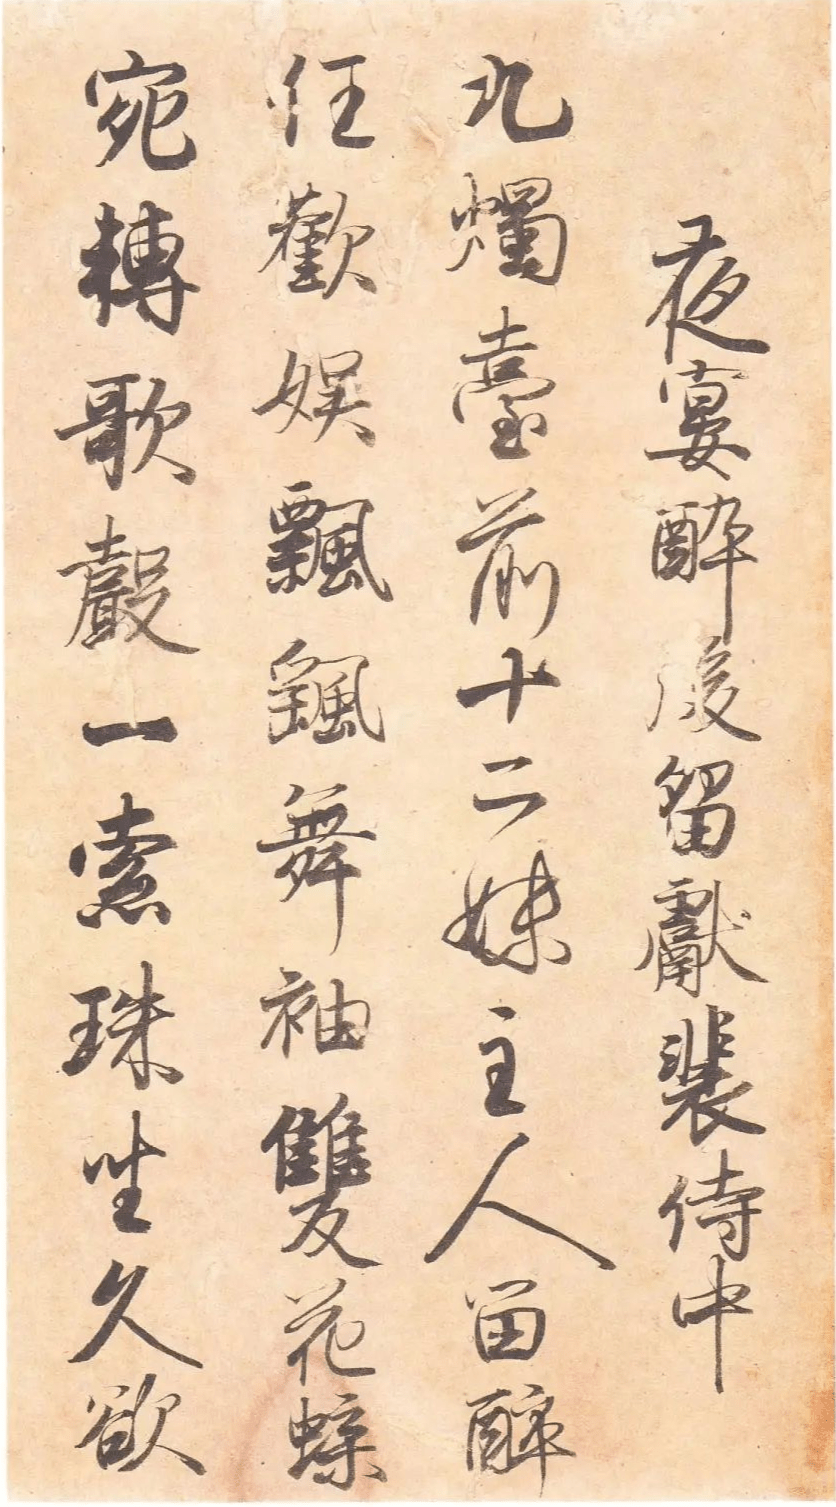 夜宴醉後留獻裴侍中
九燭臺前十二姝主人留醉
任歡娛飄颻舞袖雙花蝶
宛轉歌聲一索珠坐久欲